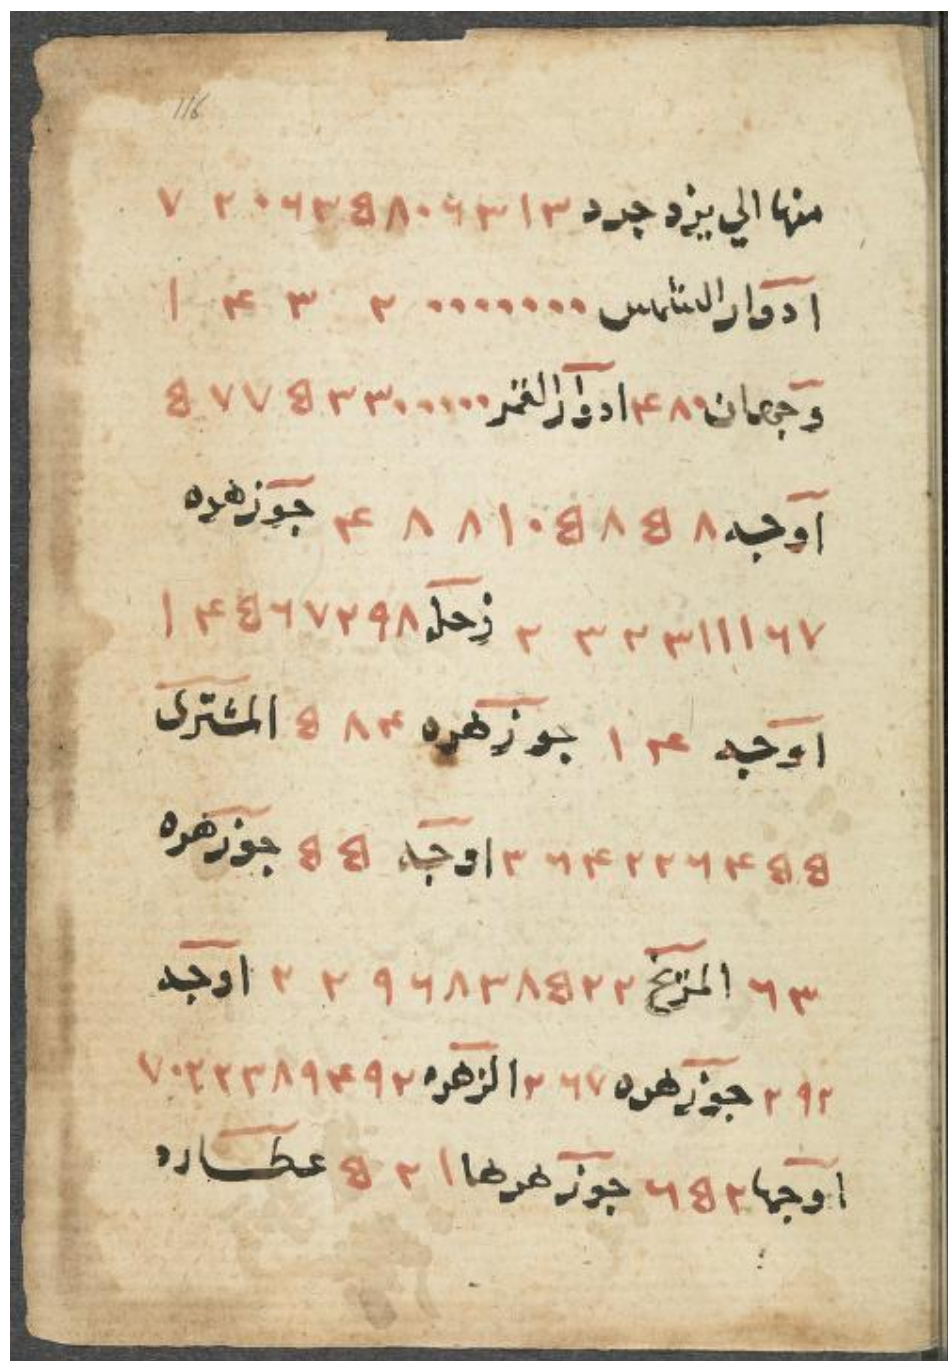 منها الي يزد جرد ٧٢٠٦٣٥٨٠٦٣١٣
ادوار الشمس ١٤٣٢٠٠٠٠٠٠٠
وجهمان ٤٨٠ ادوار القمر ٥٧٧٥٣٣٠٠٠٠٠
اوجه ٤٨٨١٠٥٨٥٨ جوزهره
٢٣٢٣١١١٦٧ زحل ١٤٥٦٧٢٩٨
اوجه ٤١ جوزهره ٥٨٤ المشترى
٣٦٤٢٢٦٤٥٥ اوجه ٥٥ جوزهره
٦٣ المريخ ٢٢٩٦٨٢٨٥٢٢ اوجه
٢٩٢ جوزهره ٢٦٧ الزهره ٧٠٢٢٣٨٩٤٩٢
اوجها ٦٥٢ جوزهرها ٥٢١ عطارد